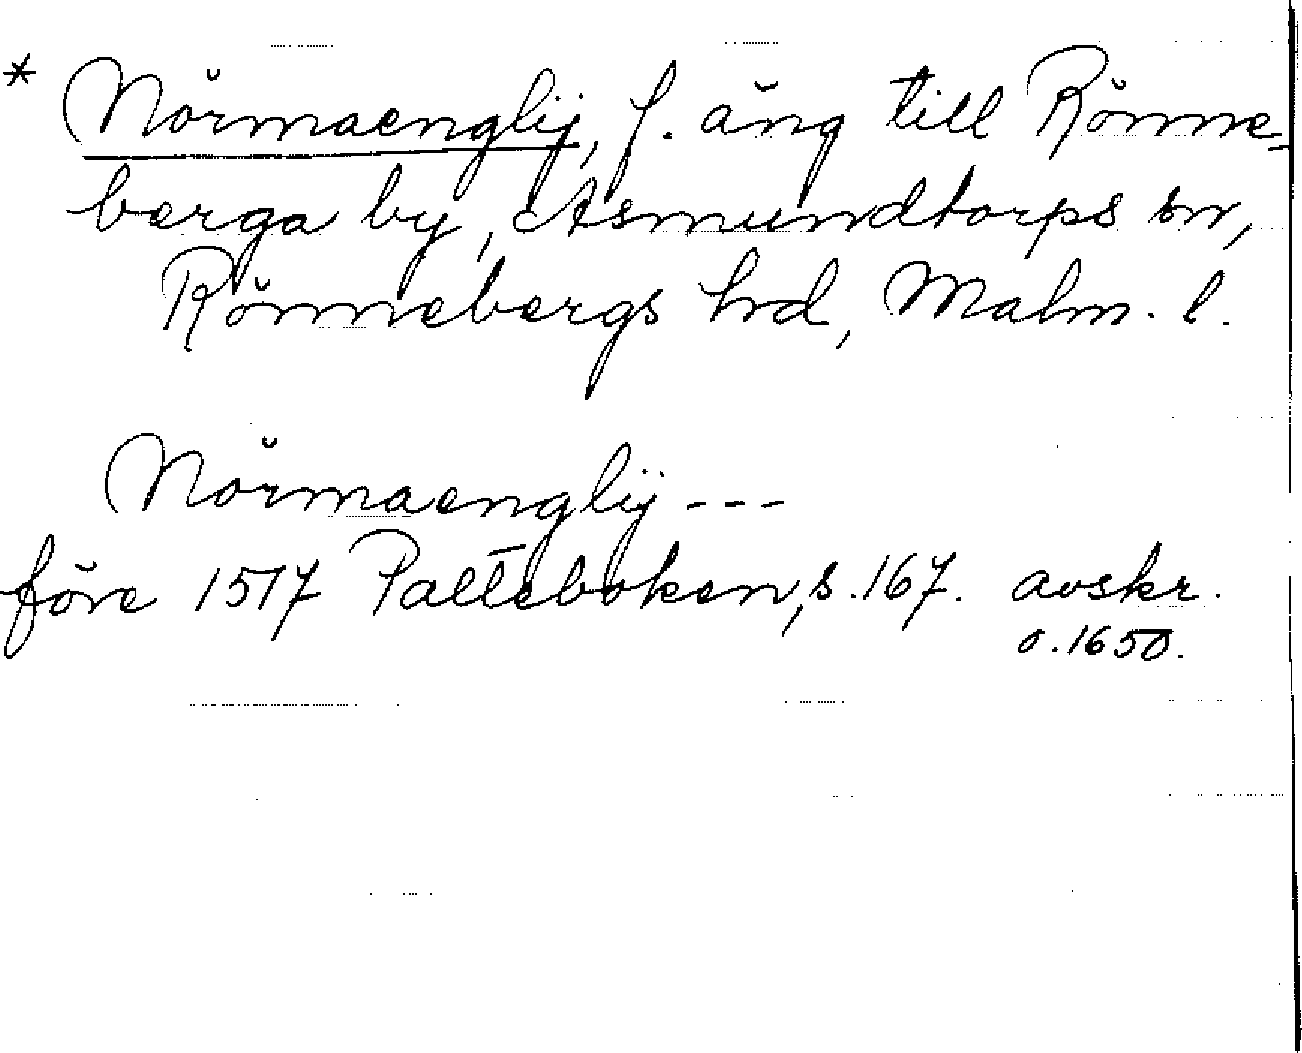 * Nörmaenglij, f. äng till Rönne-
berga by, Asmundtorps sn,
Rönnebergs hrd, Malm. l.
Nörmaenglij ---
före 1517 Palteboken, s. 167. avskr.
o. 1650.